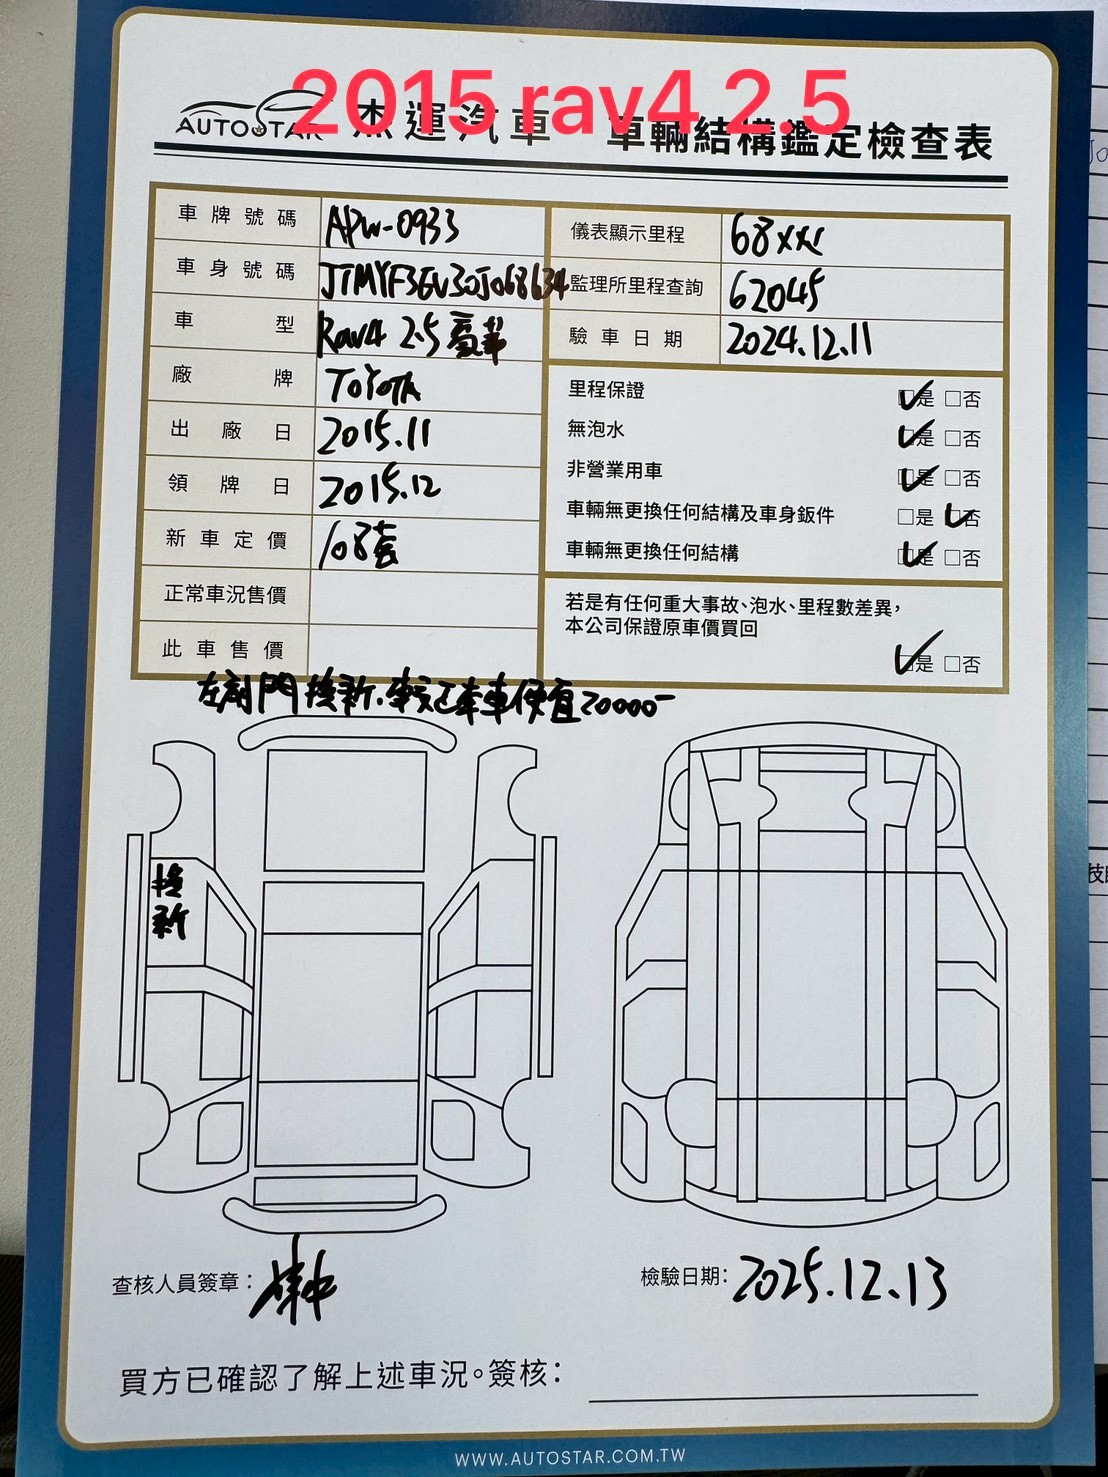 2015 rav4 2.5
AUTOSTAR 杰運汽車 車輛結構鑑定檢查表
車牌號碼 APW-0933
車身號碼 JTMYF3EV30J068634
車型 Rav4 2.5 豪華
廠牌 TOYOTA
出廠日 2015.11
領牌日 2015.12
新車定價 108萬
正常車況售價
此車售價
儀表顯示里程 68xxx
監理所里程查詢 62045
驗車日期 2024.12.11
里程保證 ☑是 □否
無泡水 ☑是 □否
非營業用車 ☑是 □否
車輛無更換任何結構及車身鈑件 □是 ☑否
車輛無更換任何結構 ☑是 □否
若是有任何重大事故、泡水、里程數差異,
本公司保證原車價買回
☑是 □否
左前門換新. 車便宜20000-
換
新
查核人員簽章:
檢驗日期: 2025.12.13
買方已確認了解上述車況。簽核:
WWW.AUTOSTAR.COM.TW